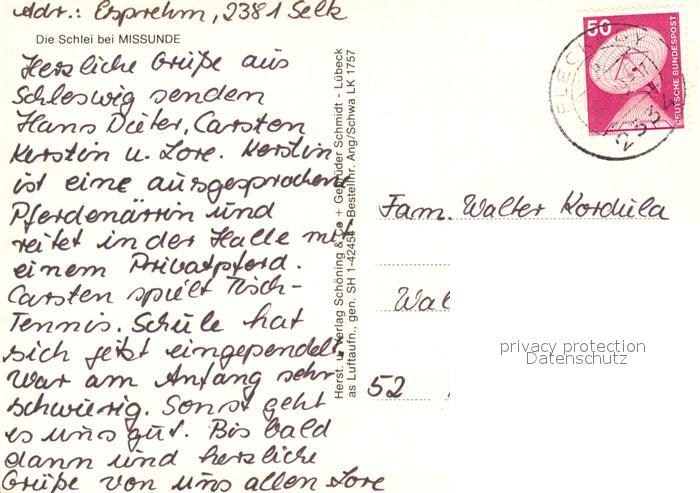 Adr.: Esprehm, 2381 Selk
Die Schlei bei MISSUNDE
Herzliche Grüße aus
Schleswig senden
Hans Dieter, Carsten
Kerstin u. Lore. Kerstin
ist eine ausgesprochene
Pferdenärrin und
reitet in der Halle mit
einem Privatpferd.
Carsten spielt Tisch-
Tennis. Schule hat
sich jetzt eingependelt
War am Anfang sehr
schwierig. Sonst geht
es uns gut. Bis bald
dann und herzliche
Grüße von uns allen Lore
Herst. u. Verlag Schöning & Co + Gebrüder Schmidt - Lübeck
as Luftaufn., gen. SH 1-42454 - Bestellnr. Ang/Schwa LK 1757
50
DEUTSCHE BUNDESPOST
Fam. Walter Kordula
Wal
52
privacy protection
Datenschutz